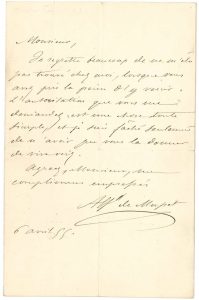 Monsieur,
Je regrette beaucoup de ne m'être
pas trouvé chez moi, lorsque vous
avez pris la peine d'y venir.
L'autorisation que vous me
demandez est une chose toute
simple, et je suis fâché seulement
de n'avoir pu vous la donner
de vive voix.
Agréez, Monsieur, mes
compliments empressés
Alf. de Musset
6 avril 55.